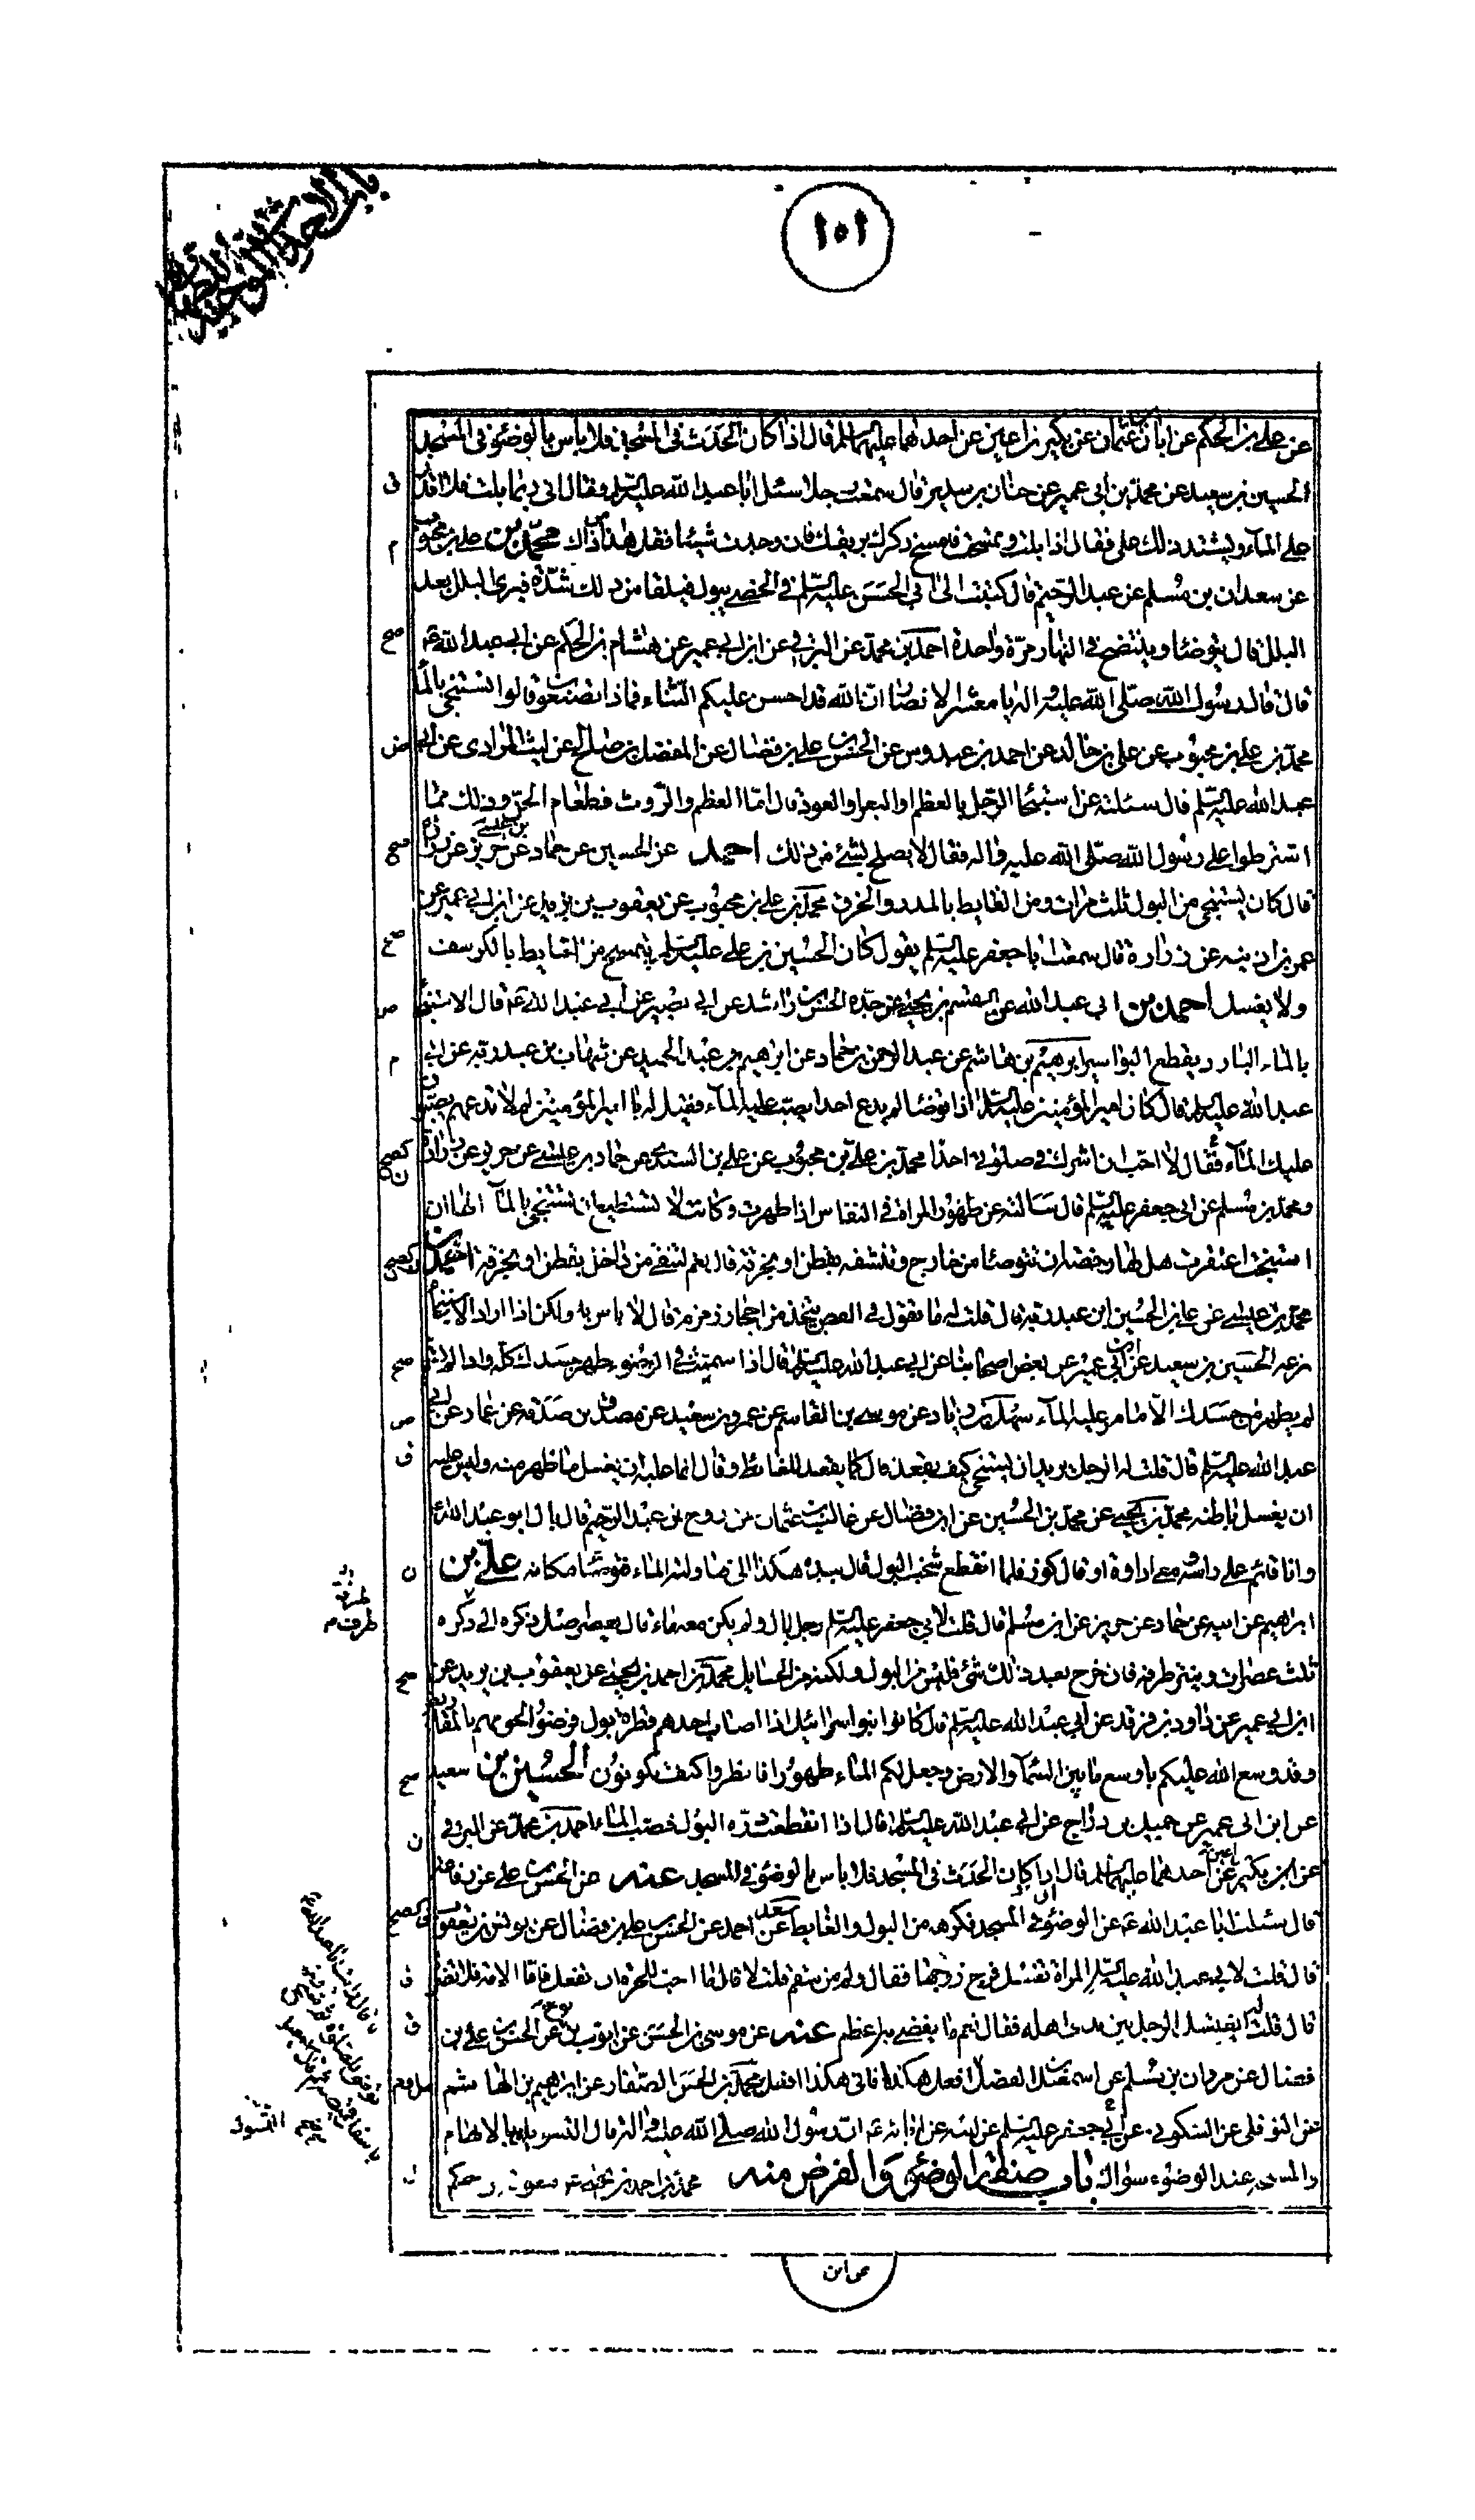 ١٥١
عن علي بن الحكم عن ابان بن عثمان عن بكير بن اعين عن احدهما عليهما السلم قال اذا كان الحدث في المسجد فلا باس بالوضوء في المسجد
الحسين بن سعيد عن محمد بن ابي عمير عن حنان بن سدير قال سمعت رجلا سئل ابا عبد الله عليه السلم فقال اني ربما بلت فلا اقدر
على الماء ويشتد ذلك على فقال اذا بلت وتمسحت فامسح ذكرك بريقك فان وجدت شيئا فقل هذا من ذاك محمد بن علي بن محبوب
عن سعدان بن مسلم عن عبد الرحيم قال كتبت الى ابي الحسن عليه السلم في الخصى يبول فيلقا من ذلك شدة فيرى البلل بعد
البلل قال يتوضأ وينتضح في النهار مرة واحدة احمد بن محمد عن البرقي عن ابن ابي عمير عن هشام بن الحكم عن ابي عبد الله ع
قال قال رسول الله صلى الله عليه واله يا معشر الانصار ان الله قد احسن عليكم الثناء فماذا تصنعون قالوا نستنجي بالماء
محمد بن علي بن محبوب عن علي بن خالد عن احمد بن عبدوس عن الحسن بن علي بن فضال عن المفضل بن صالح عن ليث المرادي عن ابي
عبد الله عليه السلم قال سئلته عن استنجاء الرجل بالعظم او البعر او العود قال اما العظم والروث فطعام الجن وذلك مما
اشترطوا على رسول الله صلى الله عليه واله فقال لا يصلح بشئ من ذلك احمد عن الحسين عن حماد بن عيسى عن حريز عن زرارة
قال كان يستنجي من البول ثلث مرات ومن الغايط بالمدر والخرق محمد بن علي بن محبوب عن يعقوب بن يزيد عن ابن ابي عمير عن
عمر بن اذينه عن زرارة قال سمعت ابا جعفر عليه السلم يقول كان الحسين بن علي عليه السلم يتمسح من الغايط بالكرسف
ولا يغسل احمد بن ابي عبد الله عن القسم بن يحيى عن جده الحسن بن راشد عن ابي بصير عن ابي عبد الله ع قال الاستنجاء
بالماء البارد يقطع البواسير ابرهيم بن هاشم عن عبد الرحمن بن حماد عن ابرهيم بن عبد الحميد عن شهاب بن عبد ربه عن ابي
عبد الله عليه السلم قال كان امير المؤمنين عليه السلم اذا توضأ لم يدع احدا يصب عليه الماء فقيل له يا امير المؤمنين لم لا تدعهم يصبون
عليك الماء فقال لا احب ان اشرك في صلوتي احدا محمد بن علي بن محبوب عن علي بن السندي عن حماد بن عيسى عن حريز عن زرارة
ومحمد بن مسلم عن ابي جعفر عليه السلم قال سالته عن طهور المراة في النفاس اذا طهرت وكانت لا تستطيع ان تستنجي بالماء انها ان
استنجت اعتقرت هل لها رخصة ان تتوضأ من خارج وتنشفه بقطن او بخرقة قال نعم لتنقي من داخل بقطن او بخرقة احمد بن
محمد بن عيسى عن علي بن الحسين ابن عبد ربه قال قلت له ما تقول في الفص يتخذ من احجار زمزم قال لا باس به ولكن اذا اراد الاستنجاء
نزعه الحسين بن سعيد عن ابن ابي عمير عن بعض اصحابنا عن ابي عبد الله عليه السلم قال اذا سميت في الوضوء طهر جسدك كله واذا لم تسم
لم يطهر من جسدك الا ما مر عليه الماء سهل بن زياد عن موسى بن القاسم عن عمرو بن سعيد عن مصدق بن صدقه عن عمار عن ابي
عبد الله عليه السلم قال قلت له الرجل يريد ان يستنجي كيف يقعد قال كما يقعد للغائط وقال انما عليه ان يغسل ما ظهر منه وليس عليه
ان يغسل باطنه محمد بن يحيى عن محمد بن الحسين عن ابن فضال عن غالب بن عثمان عن روح بن عبد الرحيم قال بال ابو عبد الله ع
وانا قائم على راسه ومعي اداوة او قال كوز فلما انقطع شخب البول قال بيده هكذا الي فناولته الماء فتوضأ مكانه علي بن
ابراهيم عن ابيه عن حماد عن حريز عن ابن مسلم قال قلت لابي جعفر عليه السلم رجل بال ولم يكن معه ماء قال يعصر اصل ذكره الى ذكره
ثلث عصرات وينتر طرفه فان خرج بعد ذلك شئ فليس من البول ولكنه من الحبايل محمد بن احمد بن يحيى عن يعقوب بن يزيد عن
ابن ابي عمير عن داود بن فرقد عن ابي عبد الله عليه السلم قال كانوا بنو اسرائيل اذا اصاب احدهم قطرة بول قرضوا لحومهم بالمقاريض
وقد وسع الله عليكم باوسع ما بين السماء والارض وجعل لكم الماء طهورا فانظروا كيف تكونون الحسين بن سعيد
عن ابن ابي عمير عن جميل بن دراج عن ابي عبد الله عليه السلم قال اذا انقطعت درة البول فصب الماء احمد بن محمد عن البرقي
عن ابن بكير عن احدهما عليهما السلم قال اذا كان الحدث في المسجد فلا باس بالوضوء في المسجد عنه عن الحسن بن علي عن رفاعة
قال سئلت ابا عبد الله ع عن الوضوء في المسجد فكرهه من البول والغايط سعد عن احمد عن الحسن بن علي بن فضال عن يونس بن يعقوب
قال قلت لابي عبد الله عليه السلم المراة تغسل فرج زوجها فقال ولم من سقم قلت لا قال ما احب للحرة ان تفعل فاما الامة فلا تضر
قال قلت له ايغتسل الرجل بين يدى اهله فقال نعم ما يفضي به اعظم عنه عن موسى بن الحسن عن ايوب بن نوح عن الحسن بن علي بن
فضال عن مروان بن مسلم عن اسمعيل بن الفضل محمد بن الحسن الصفار عن ابراهيم بن الهاشم
عن النوفلي عن السكوني عن جعفر عليه السلم عن ابيه عن ابائه ع ان رسول الله صلى الله عليه واله قال التسويك بالابهام
والمسبحة عند الوضوء سواك باب صفة الوضوء والفرض منه محمد بن احمد بن يحيى